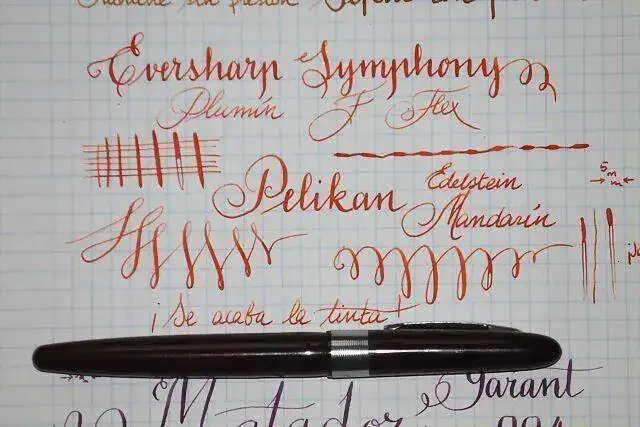 sin presión
Eversharp Symphony
Plumín F Flex
Pelikan Edelstein
Mandarín
5 mm
¡Se acaba la tinta!
Matador Garant